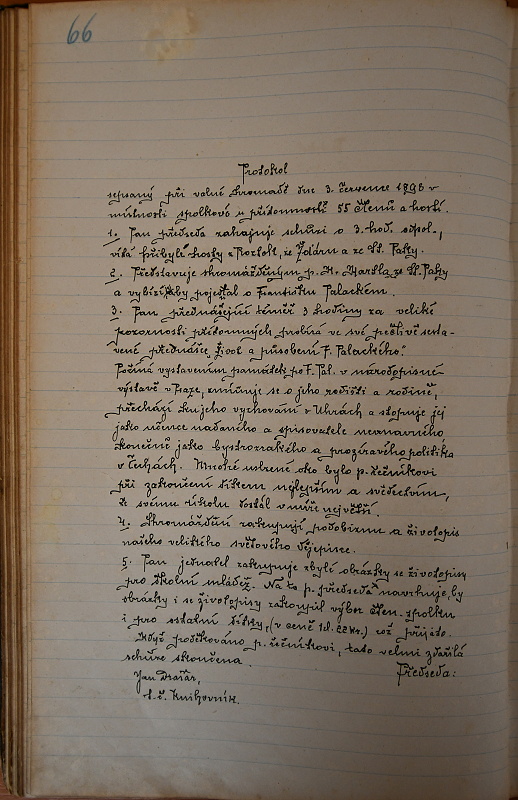 66
Protokol
sepsaný při valné hromadě dne 3. července 1898 v
místnosti spolkové u přítomnosti 55 členů a hostí.
1. Pan předseda zahajuje schůzi o 3. hod. odpol.,
vítá přibylé hosty z Roztok, ze Žďáru a ze St. Paky.
2. Představuje shromážděným p. H. ze St. Paky
a vybízí, aby pojednal o Františku Palackém.
3. Pan přednášející téměř 3 hodiny za veliké
pozornosti přítomných probírá ve své pečlivě sesta-
vené přednášce „Život a působení F. Palackého."
Počíná vystavením památek po F. Pal. v národopisné
výstavě v Praze, zmiňuje se o jeho rodišti a rodině,
přechází ku jeho vychování v Uhrách a stopuje jej
jako učence nadaného a spisovatele neunavného
konečně jako bystrozrakého a prozíravého politika
v Čechách. Mnohé uslzené oko bylo p. řečníkovi
při zakončení díkem nejlepším a svědectvím,
že svému úkolu dostál v míře největší.
4. Shromáždění zakupují podobiznu a životopis
našeho velikého světového dějepisce.
5. Pan jednatel zakupuje zbylé obrázky se životopisy
pro školní mládež. Na to p. předseda navrhuje, by
obrázky i se životopisy zakoupil výbor čten. spolku
i pro ostatní dítky, (v ceně 1 zl. 22 kr.) což přijato.
Když poděkováno p. řečníkovi, tato velmi zdařilá
schůze skončena.
Předseda:
Jan
t. č. knihovník.